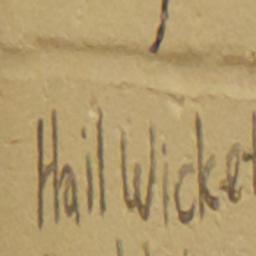 Hail Wicket